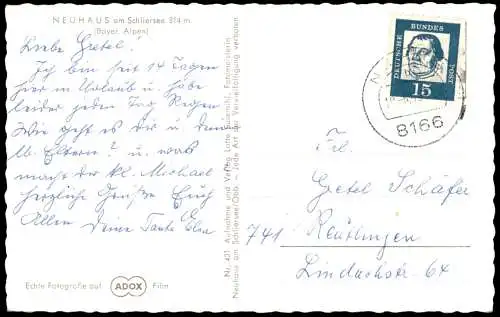 NEUHAUS am Schliersee 814 m.
(Bayer. Alpen)
Liebe Gretel!
Ich bin seit 14 Tagen
hier in Urlaub u. habe
leider jeden Tag Regen
Wie geht es dir u. deinen
lb. Eltern? u. was
macht der kl. Michael
herzliche Grüße Euch
Allen Deine Tante Elsa
Echte Fotografie auf ADOX Film
Nr. 431 Aufnahme und Verlag Lotte
Neuhaus am Schliersee/Obb. Jede Art der Vervielfältigung verboten
DEUTSCHE BUNDESPOST
15
8166
Frl.
Gretel Schäfer
741 Reutlingen
Lindachstr. 64